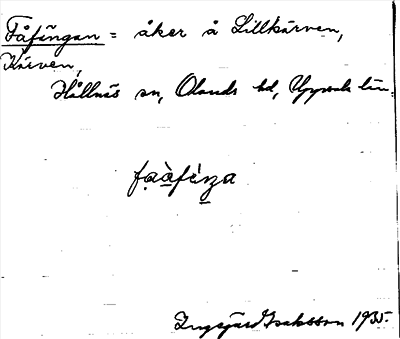 Fåfängan = åker å Lillkärven,
Kärven,
Hållnäs sn, Olands hd, Uppsala län.
fa̠àfèŋa
Ingegärd Isaksson 1935.